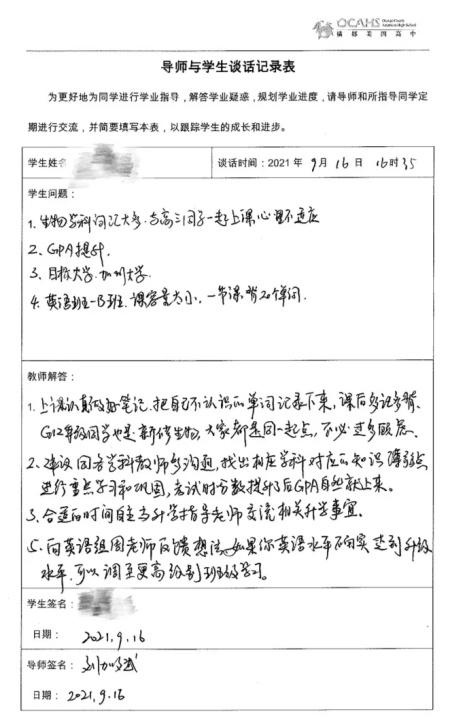 OCAHS
橘郡美国高中
导师与学生谈话记录表
为更好地为同学进行学业指导，解答学业疑惑，规划学业进度，请导师和所指导同学定
期进行交流，并简要填写本表，以跟踪学生的成长和进步。
学生姓名
谈话时间：2021年 9月 16日 16时35
学生问题：
1、生物学科词汇太多，与高三同学一起上课心里不适应
2、GPA提升.
3、目标大学.加州大学.
4、英语班-B班.课容量太小，一节课背20个单词.
教师解答：
1、上课认真做好笔记.把自己不认识的单词记录下来，课后多记多背、
G12年级同学也是新修生物，大家都是同一起点，不必过多顾虑.
2、建议同各学科教师多沟通，找出相应学科对应的知识薄弱点
进行重点学习和巩固，考试时分数提升了后GPA自然就上来。
3、合适的时间自主去升学指导老师交流相关升学事宜.
5、向英语组周老师反馈想法，如果你英语水平确实达到升级
水平，可以调至更高级别班级学习。
学生签名：
日期： 2021.9.16
导师签名：
日期： 2021.9.16